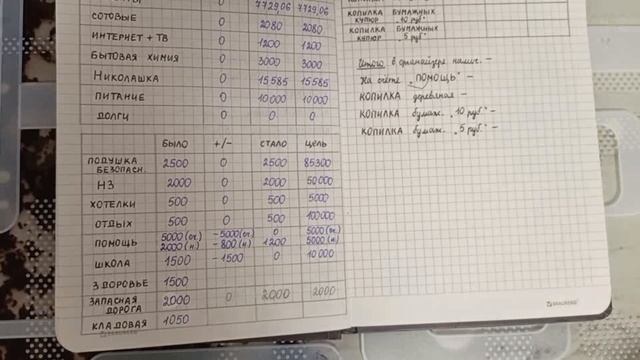 0 772906 772906
СОТОВЫЕ 0 2080 2080
ИНТЕРНЕТ + ТВ 0 1200 1200
БЫТОВАЯ ХИМИЯ 0 3000 3000
НИКОЛАШКА 0 15585 15585
ПИТАНИЕ 0 10000 10000
ДОЛГИ 0 0 0
БЫЛО +/- СТАЛО ЦЕЛЬ
ПОДУШКА БЕЗОПАСН. 2500 0 2500 85300
НЗ 2000 0 2000 50000
ХОТЕЛКИ 500 0 500 5000
ОТДЫХ 500 0 500 100000
ПОМОЩЬ 5000(сч.) -5000(сч.) 0 5000(сч.)
2000(н.) -800(н.) 1200 5000(н.)
ШКОЛА 1500 -1500 0 10000
ЗДОРОВЬЕ 1500
ЗАПАСНАЯ ДОРОГА 2000 0 2000 2000
КЛАДОВАЯ 1050
КОПИЛКА БУМАЖНЫХ
КУПЮР 10 руб.
КОПИЛКА БУМАЖНЫХ
КУПЮР 5 руб.
Итого в финайзере налич. -
На счёте "ПОМОЩЬ" -
КОПИЛКА деревянная -
КОПИЛКА бумаж. "10 руб." -
КОПИЛКА бумаж. "5 руб." -
BRAUBERG